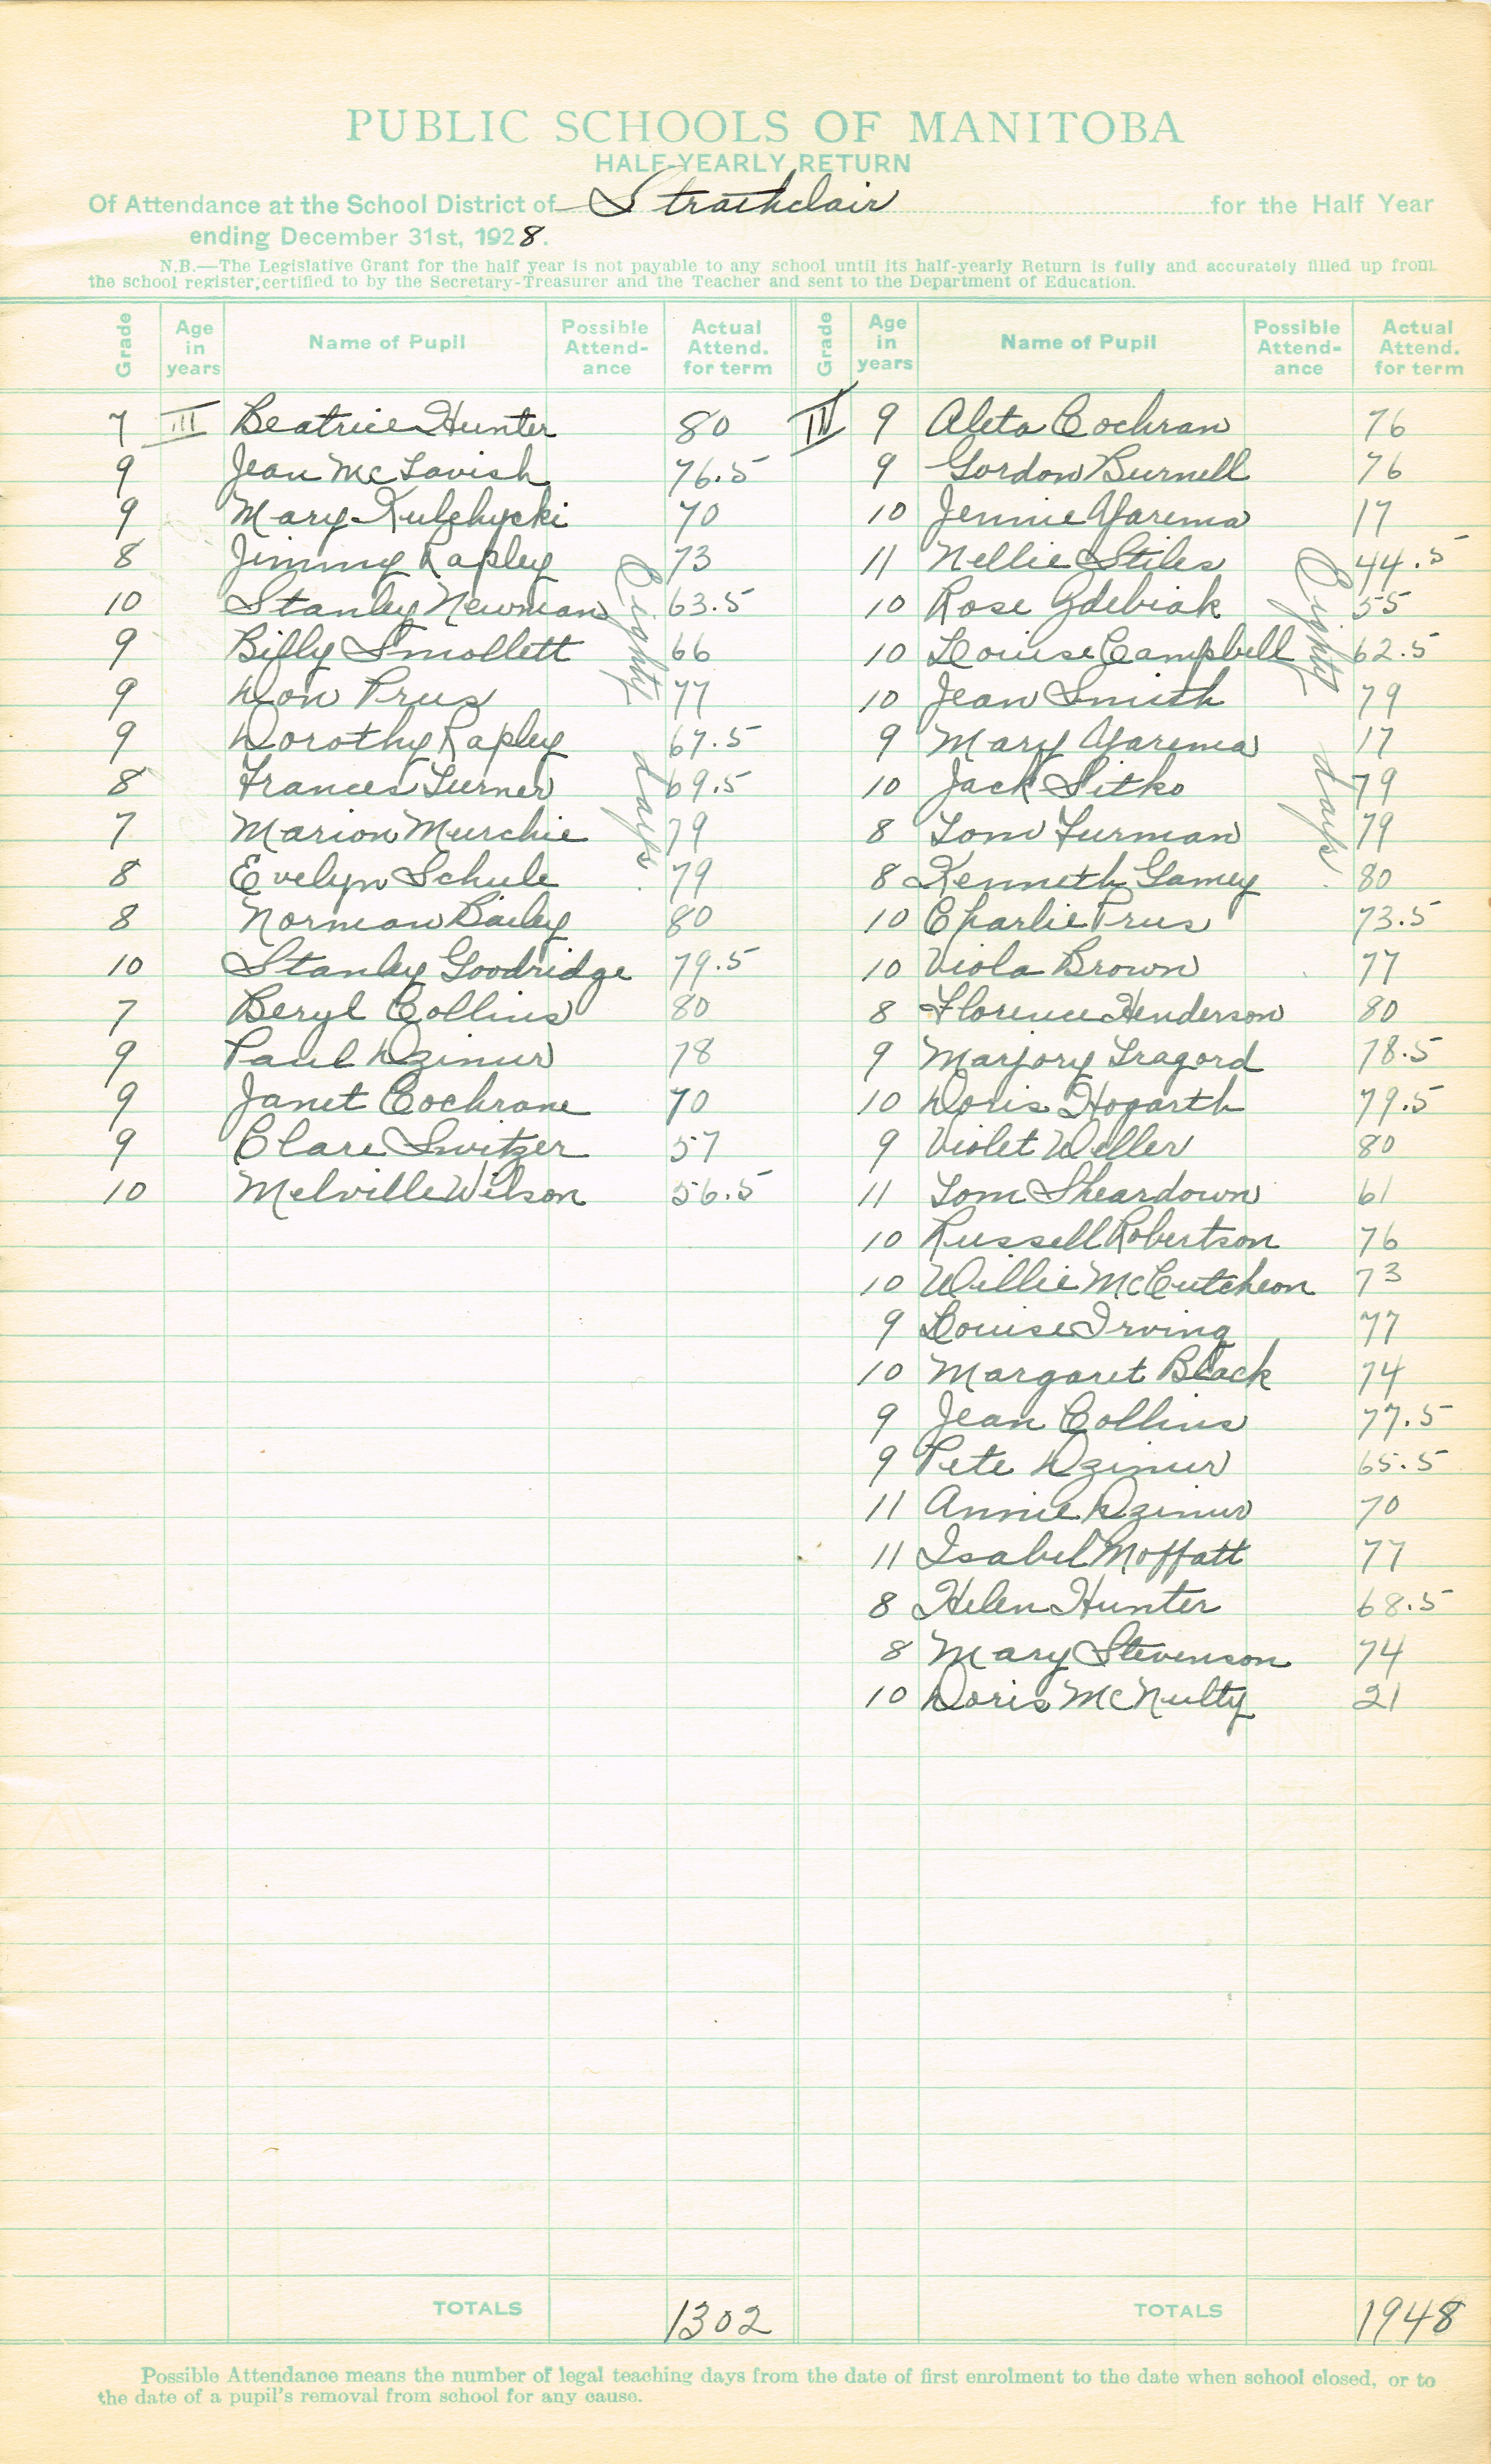 PUBLIC SCHOOLS OF MANITOBA
HALF-YEARLY RETURN
Of Attendance at the School District of Strathclair for the Half Year
ending December 31st, 1928.
N.B.—The Legislative Grant for the half year is not payable to any school until its half-yearly Return is fully and accurately filled up from
the school register, certified to by the Secretary-Treasurer and the Teacher and sent to the Department of Education.
Grade Age in years Name of Pupil Possible Attend-ance Actual Attend. for term Grade Age in years Name of Pupil Possible Attend-ance Actual Attend. for term
7 III Beatrice Hunter 80 IV 9 Aleta Cochran 76
9 Jean McTavish 76.5 9 Gordon Burnell 76
9 Mary Kulzhycki 70 10 Jennie Yarema 17
8 Jimmy Rapley 73 11 Nellie Stiles 44.5
10 Stanley Newman 63.5 10 Rose Zdebiak 55
9 Billy Smollett 66 10 Louise Campbell 62.5
9 Don Prus 77 10 Jean Smith 79
9 Dorothy Rapley 67.5 9 Mary Yarema 17
8 Frances Turner 69.5 10 Jack Sitko 79
7 Marion Murchie 79 8 Tom Furman 79
8 Evelyn Schule 79 8 Kenneth Gamey 80
8 Norman Bailey 80 10 Charlie Prus 73.5
10 Stanley Goodridge 79.5 10 Viola Brown 77
7 Beryl Collins 80 8 Florence Henderson 80
9 Paul Dzimur 78 9 Marjory Tragord 78.5
9 Janet Cochrane 70 10 Doris Hogarth 79.5
9 Clare Switzer 57 9 Violet Weller 80
10 Melville Wilson 56.5 11 Tom Sheardown 61
10 Russell Robertson 76
10 Willie McCutcheon 73
9 Louise Irving 77
10 Margaret Black 74
9 Jean Collins 77.5
9 Pete Dzimur 65.5
11 Annie Dzimur 70
11 Isabel Moffatt 77
8 Helen Hunter 68.5
8 Mary Stevenson 74
10 Doris McNulty 21
Eighty days.
Eighty days.
TOTALS 1302 TOTALS 1948
Possible Attendance means the number of legal teaching days from the date of first enrolment to the date when school closed, or to
the date of a pupil's removal from school for any cause.